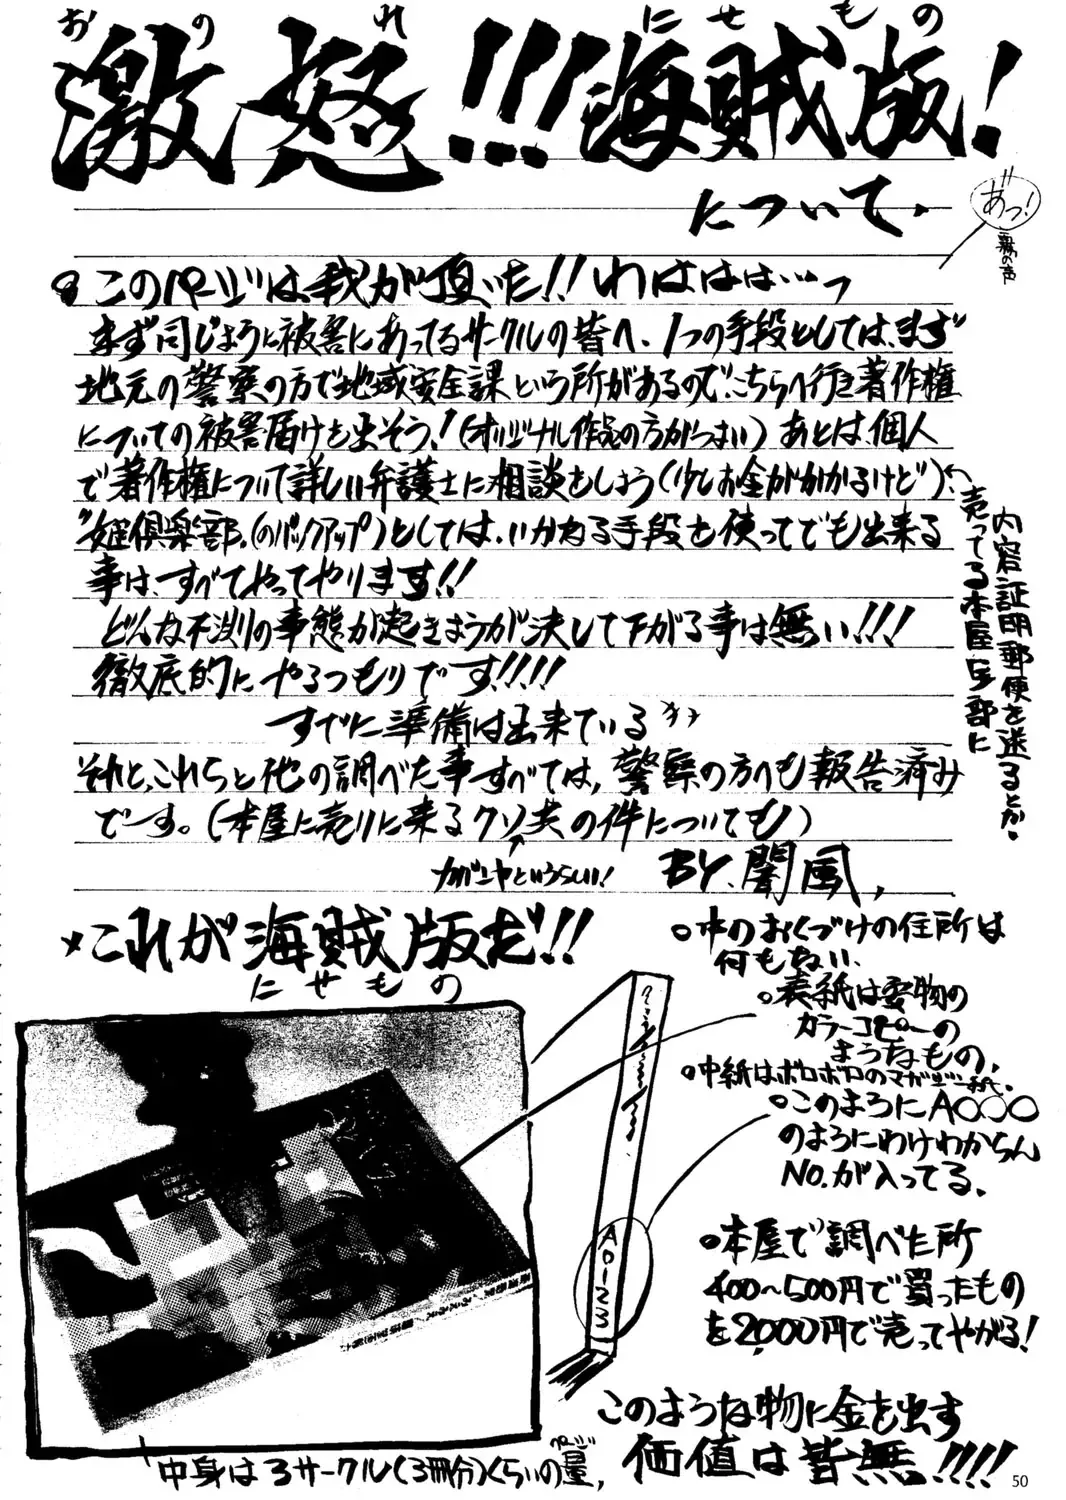 おのれ　にせもの
激怒!!!海賊版!
について.
あっ!
霧の声
このページは、我が頂いた!!わははは…っ
まず同じように被害にあってるサークルの皆へ、1つの手段としては、まず
地元の警察の方で地域安全課という所があるので、こちらへ行き著作権
についての被害届けを出そう!(オリジナル作品の方がつよい)あとは、個人
で著作権について詳しい弁護士に相談をしよう(少しお金がかかるけど)、
内容証明郵便を送るとか.
売ってる本屋全部に
"姫倶楽部.(のバックアップ)としては、いかなる手段を使ってでも出来る
事は、すべてやってやります!!
どんな不測の事態が起きようが決して下がる事は無い!!!
徹底的にやるつもりです!!!!
すでに準備は出来ている
それと、これらと他の調べた事すべては、警察の方へも報告済み
です。(本屋に売りに来るクソ共の件についても)
というらしい!
BY.闇風,
これが海賊版だ!!
にせもの
中のおくづけの住所は
何もない、
表紙は実物の
カラーコピーの
ようなもの,
中紙はボロボロのマガジン紙.
このようにA○○○
のようにわけわからん
NO.が入ってる.
A0123
本屋で調べた所
400~500円で買ったもの
を2,000円で売ってやがる!
このような物に金を出す
価値は皆無!!!!
中身は3サークル(3冊分)くらいの量,
ページ
50